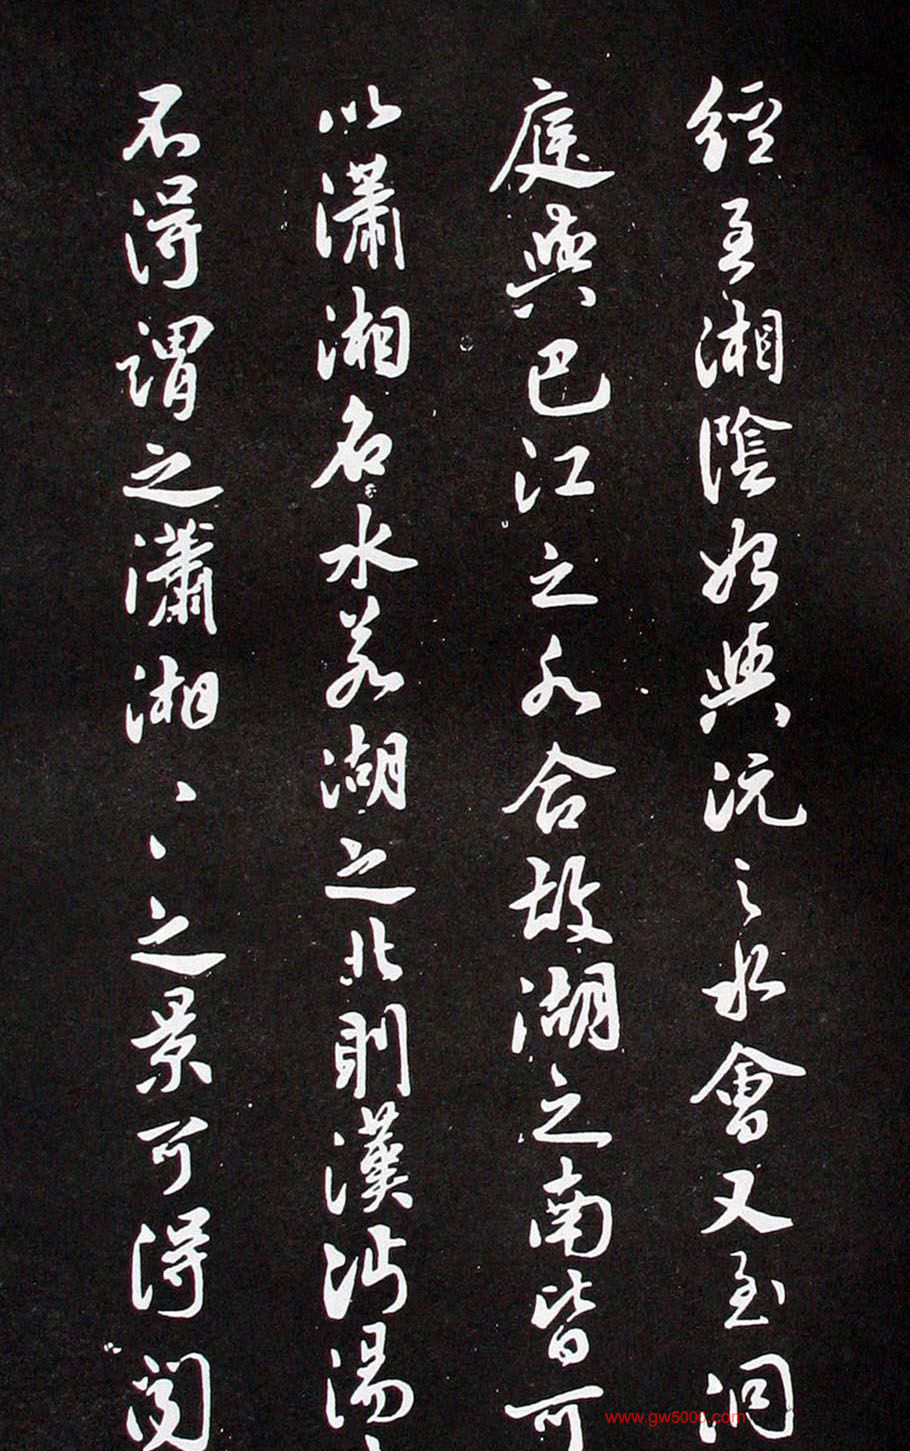 經至湘陰始與沅之水會又至洞
庭與巴江之水合故湖之南皆可
以瀟湘名水若湖之北則漢沔湯
不得謂之瀟湘〻之景可得聞
www.gw5000.com